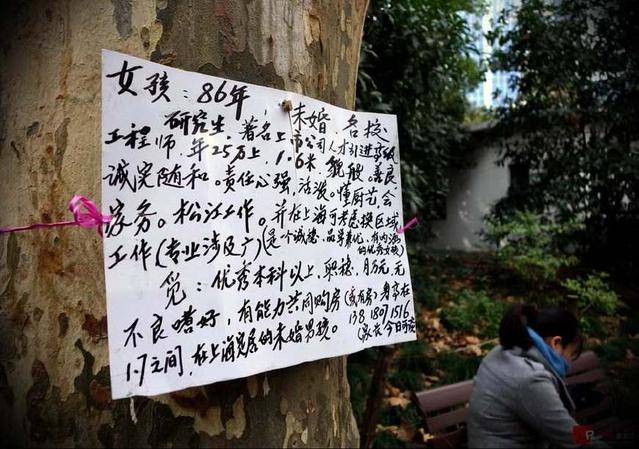 女孩：86年 未婚、名校
研究生，著名上市公司人才引进高级
工程师，年25万上，1.6米，貌般。善良、
诚实随和。责任心强，活泼。懂厨艺，会
家务。松江工作。并在上海可考虑换区域
工作(专业涉及广)(是个诚稳、品学兼优、有内涵
的优秀女孩)
觅：优秀本科以上，职稳，月万元，无
不良嗜好，有能力共同购房(或有房)身高在
1.7之间，在上海定居的未婚男孩。
(家长今日